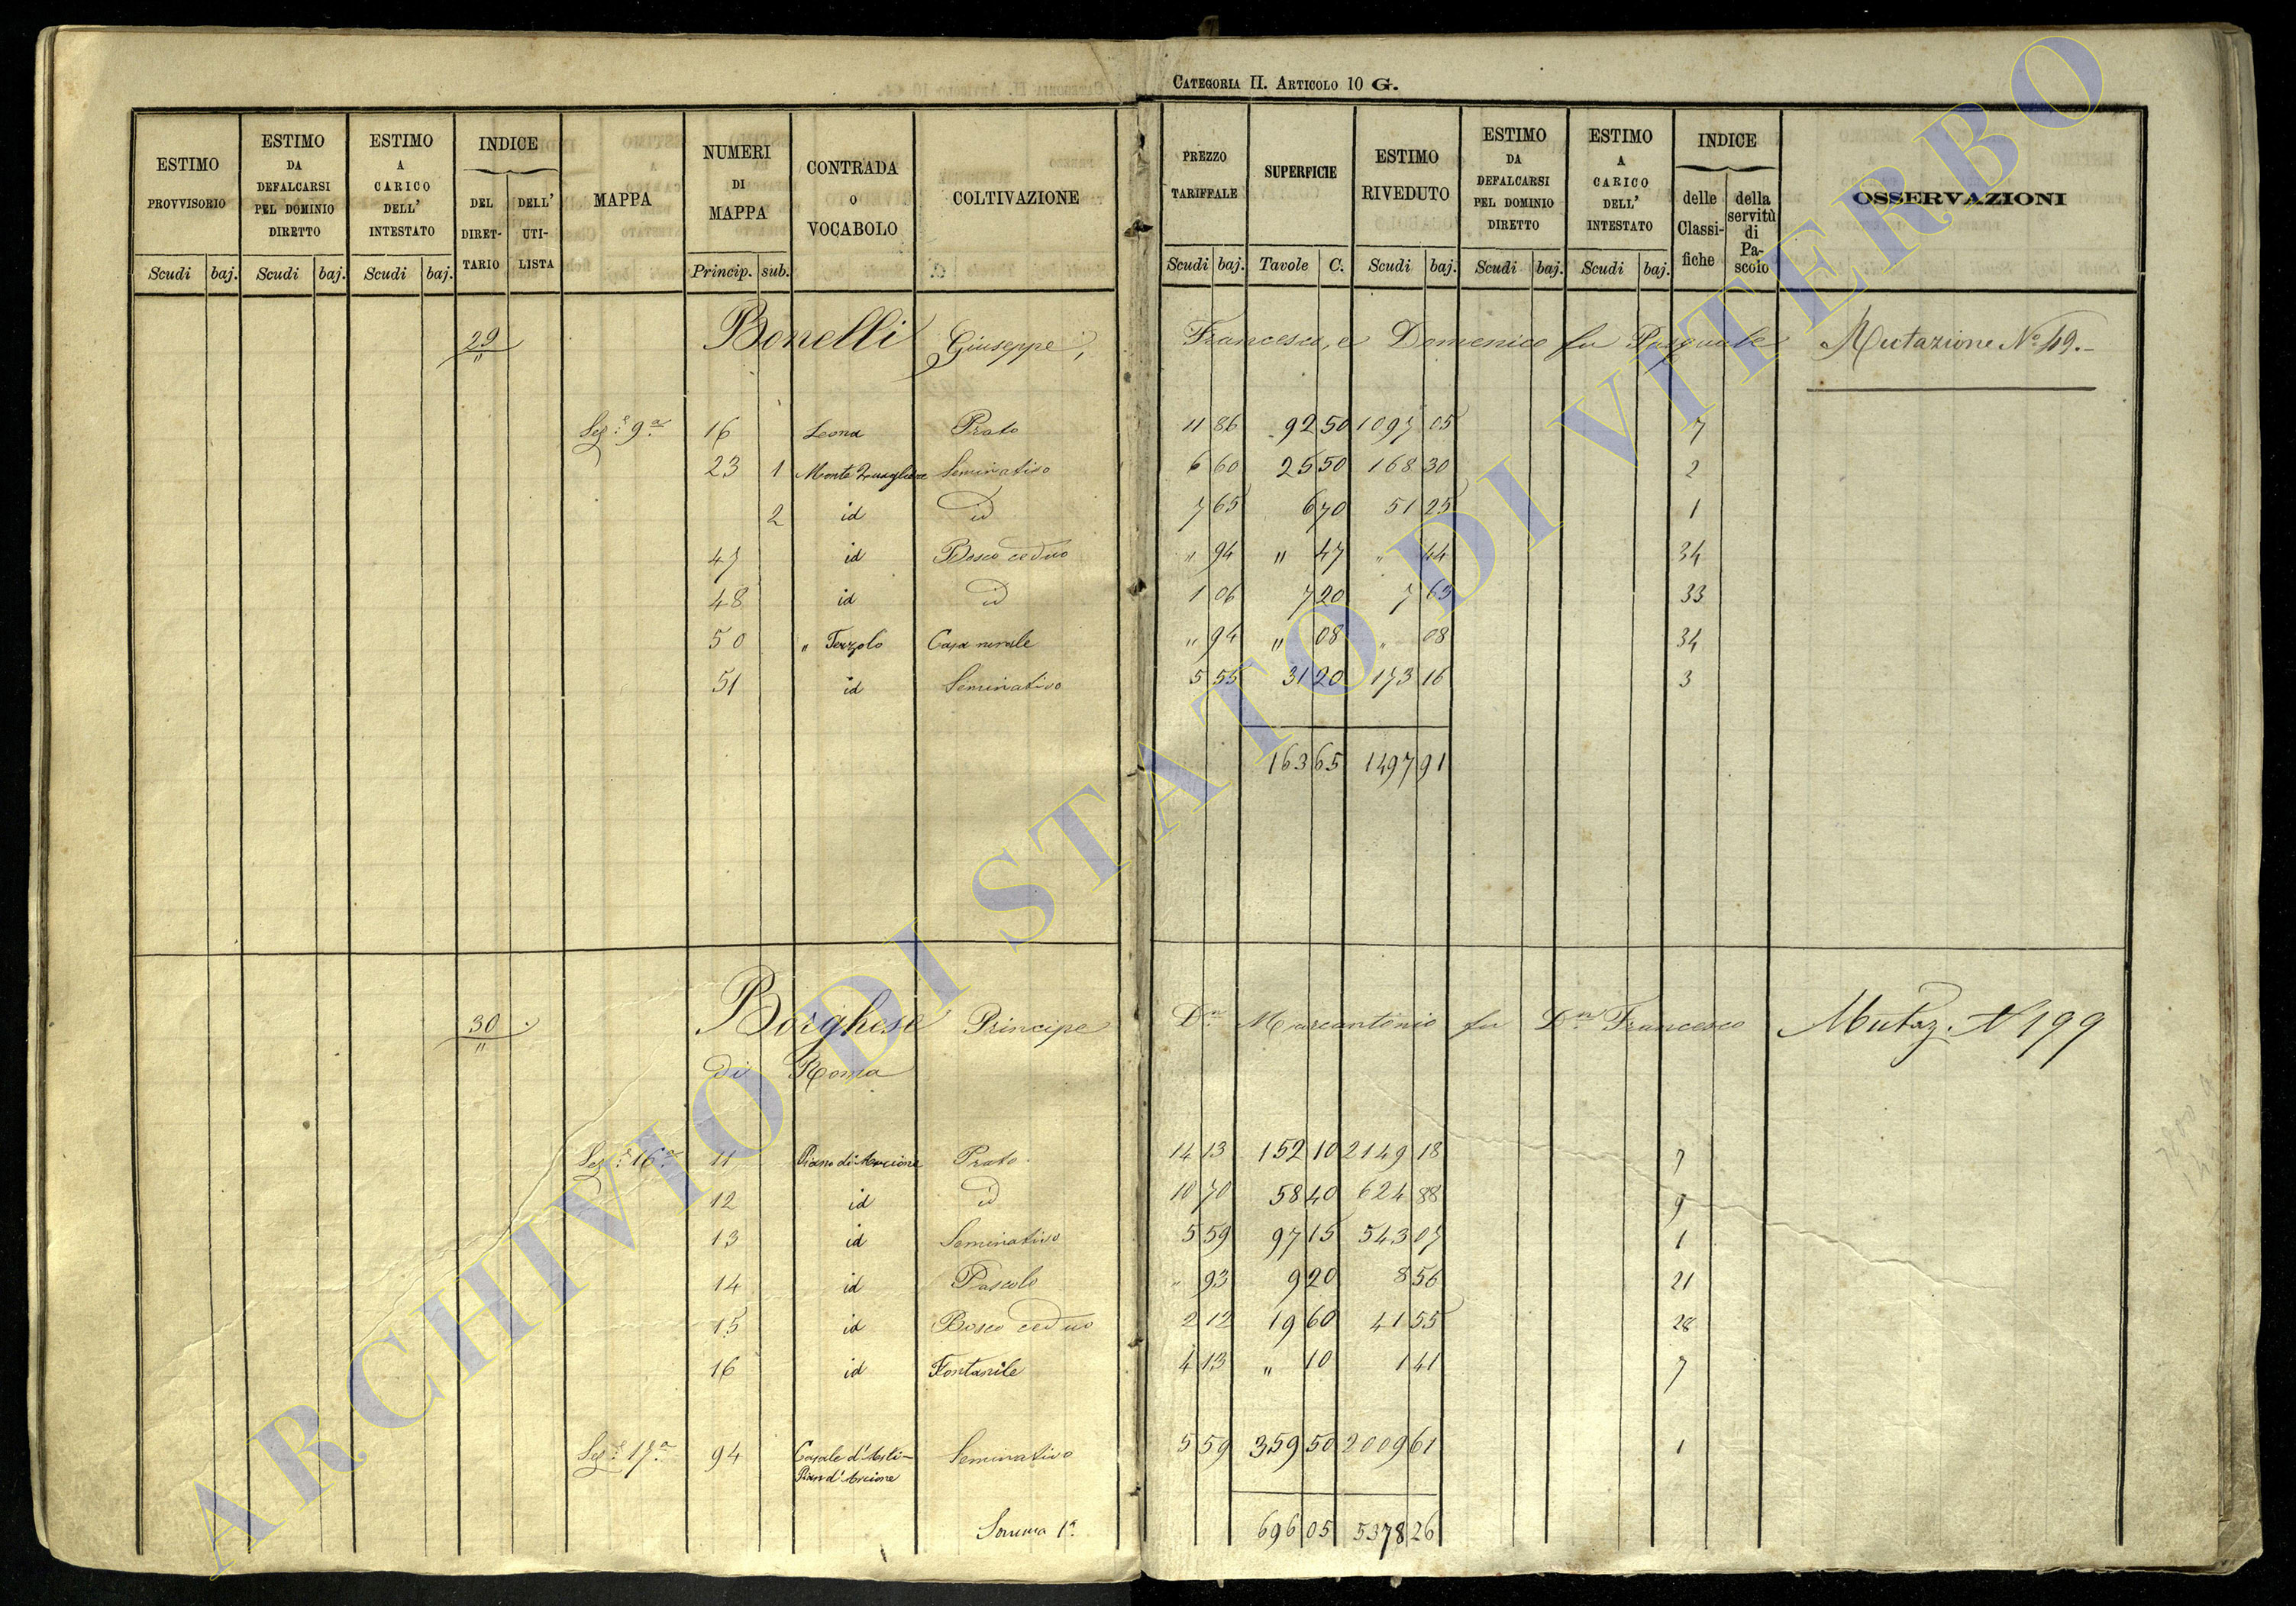 CATEGORIA II. ARTICOLO 10 G.
ESTIMO PROVVISORIO Scudi baj. | ESTIMO DA DEFALCARSI PEL DOMINIO DIRETTO Scudi baj. | ESTIMO A CARICO DELL' INTESTATO Scudi baj. | INDICE DEL DIRETTARIO | DELL' UTILISTA | MAPPA | NUMERI DI MAPPA Princip. sub. | CONTRADA O VOCABOLO | COLTIVAZIONE | PREZZO TARIFFALE Scudi baj. | SUPERFICIE Tavole C. | ESTIMO RIVEDUTO Scudi baj. | ESTIMO DA DEFALCARSI PEL DOMINIO DIRETTO Scudi baj. | ESTIMO A CARICO DELL' INTESTATO Scudi baj. | INDICE delle Classifiche | della servitù di Pascolo | OSSERVAZIONI
29 " Bonelli Giuseppe, Francesco, e Domenico fu Pasquale Mutazione N° 49.-
Sez.e 9a 16 Leona Prato 11 86 92 50 1097 05 7
23 1 Monte Seminativo 6 60 25 50 168 30 2
2 id id 7 65 6 70 51 25 1
47 id Bosco ceduo " 94 " 47 " 44 34
48 id id 1 06 7 20 7 63 33
50 " Terzolo Casa rurale " 94 " 08 " 08 34
51 id Seminativo 5 55 31 20 173 16 3
163 65 1497 91
30 " Borghese Principe Dn Marcantonio fu Dn Francesco Mutaz. N 199
di Roma
Sez.e 16a 11 Piano di Arcione Prato 14 13 152 10 2149 18 7
12 id id 10 70 58 40 624 88 9
13 id Seminativo 5 59 97 15 543 07 1
14 id Pascolo " 93 9 20 8 56 21
15 id Bosco ceduo 2 12 19 60 41 55 28
16 id Fontanile 4 13 " 10 1 41 7
Sez.e 17a 94 Casale d'Asti- Seminativo 5 59 359 50 2009 61 1
Pian d'Arcione
Somma 1a 696 05 5378 26
ARCHIVIO DI STATO DI VITERBO